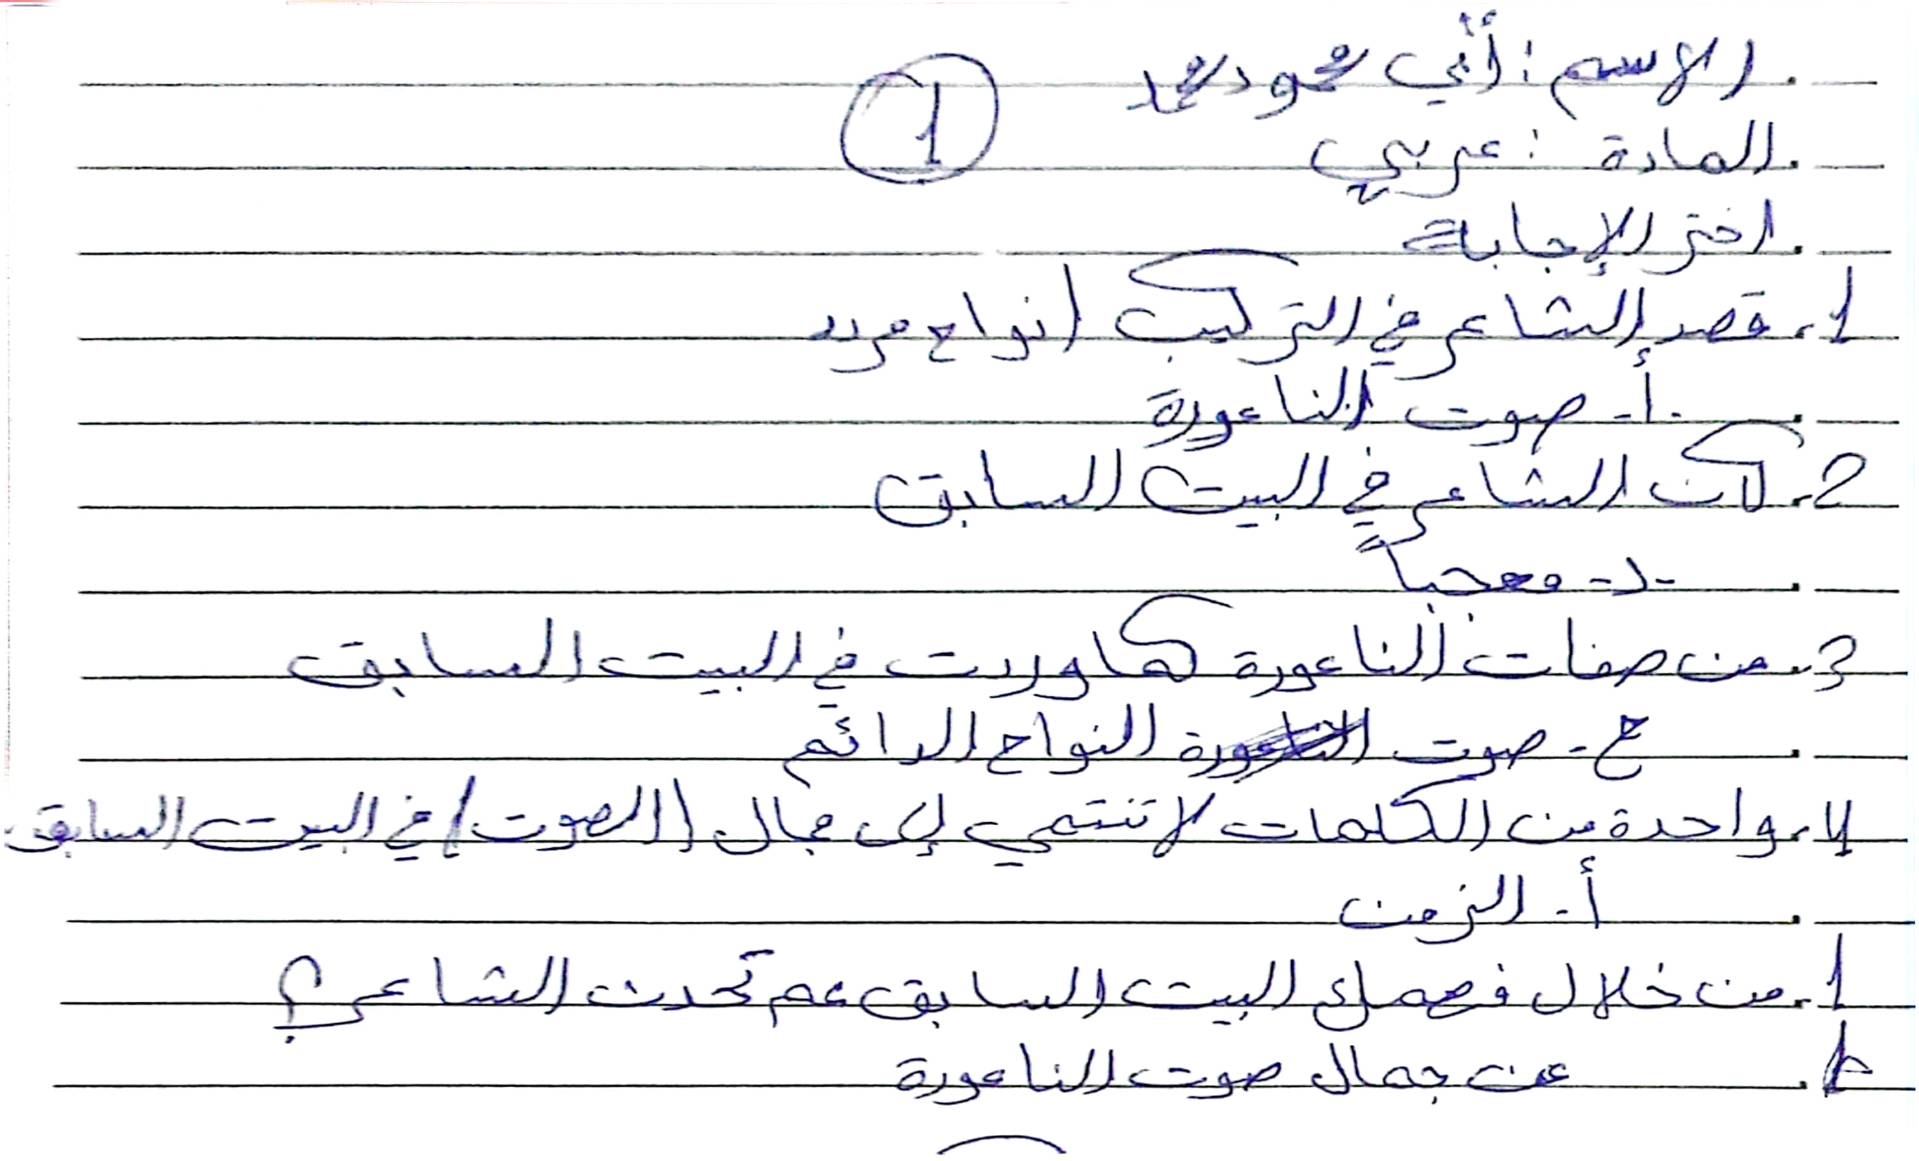 الاسم: أُبي محمود محمد
1
المادة: عربي
اختر الإجابة
1. قصد الشاعر في التركيب (نواح مردد
أ- صوت الناعورة
2. كان الشاعر في البيت السابق
د- معجباً
3. من صفات الناعورة كما وردت في البيت السابق
ج- صوت النواح الدائم
4. واحدة من الكلمات لا تنتمي إلى مجال (الصوت) في البيت السابق
أ- الزمن
1. من خلال فهمك البيت السابق عم تحدث الشاعر؟
عن جمال صوت الناعورة